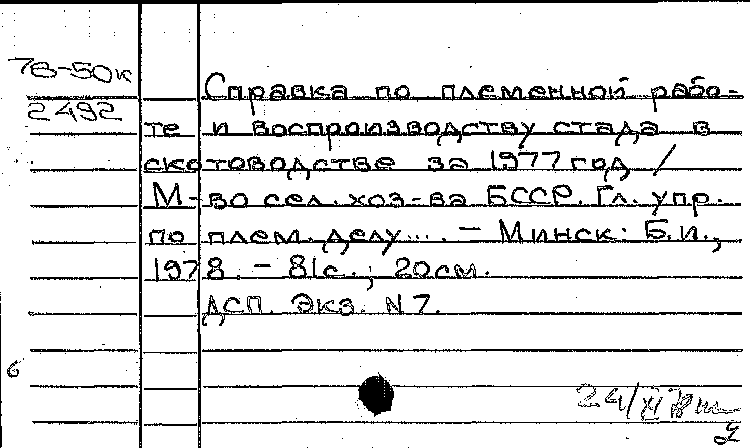 78-50к
2492
Справка по племенной рабо-
те и воспроизводству стада в
скотоводстве за 1977 год /
М-во сел. хоз-ва БССР. Гл. упр.
по плем. делу... . – Минск: Б.и.,
1978. – 81с.; 20см.
ДСП. Экз. N 7.
6
24/XI